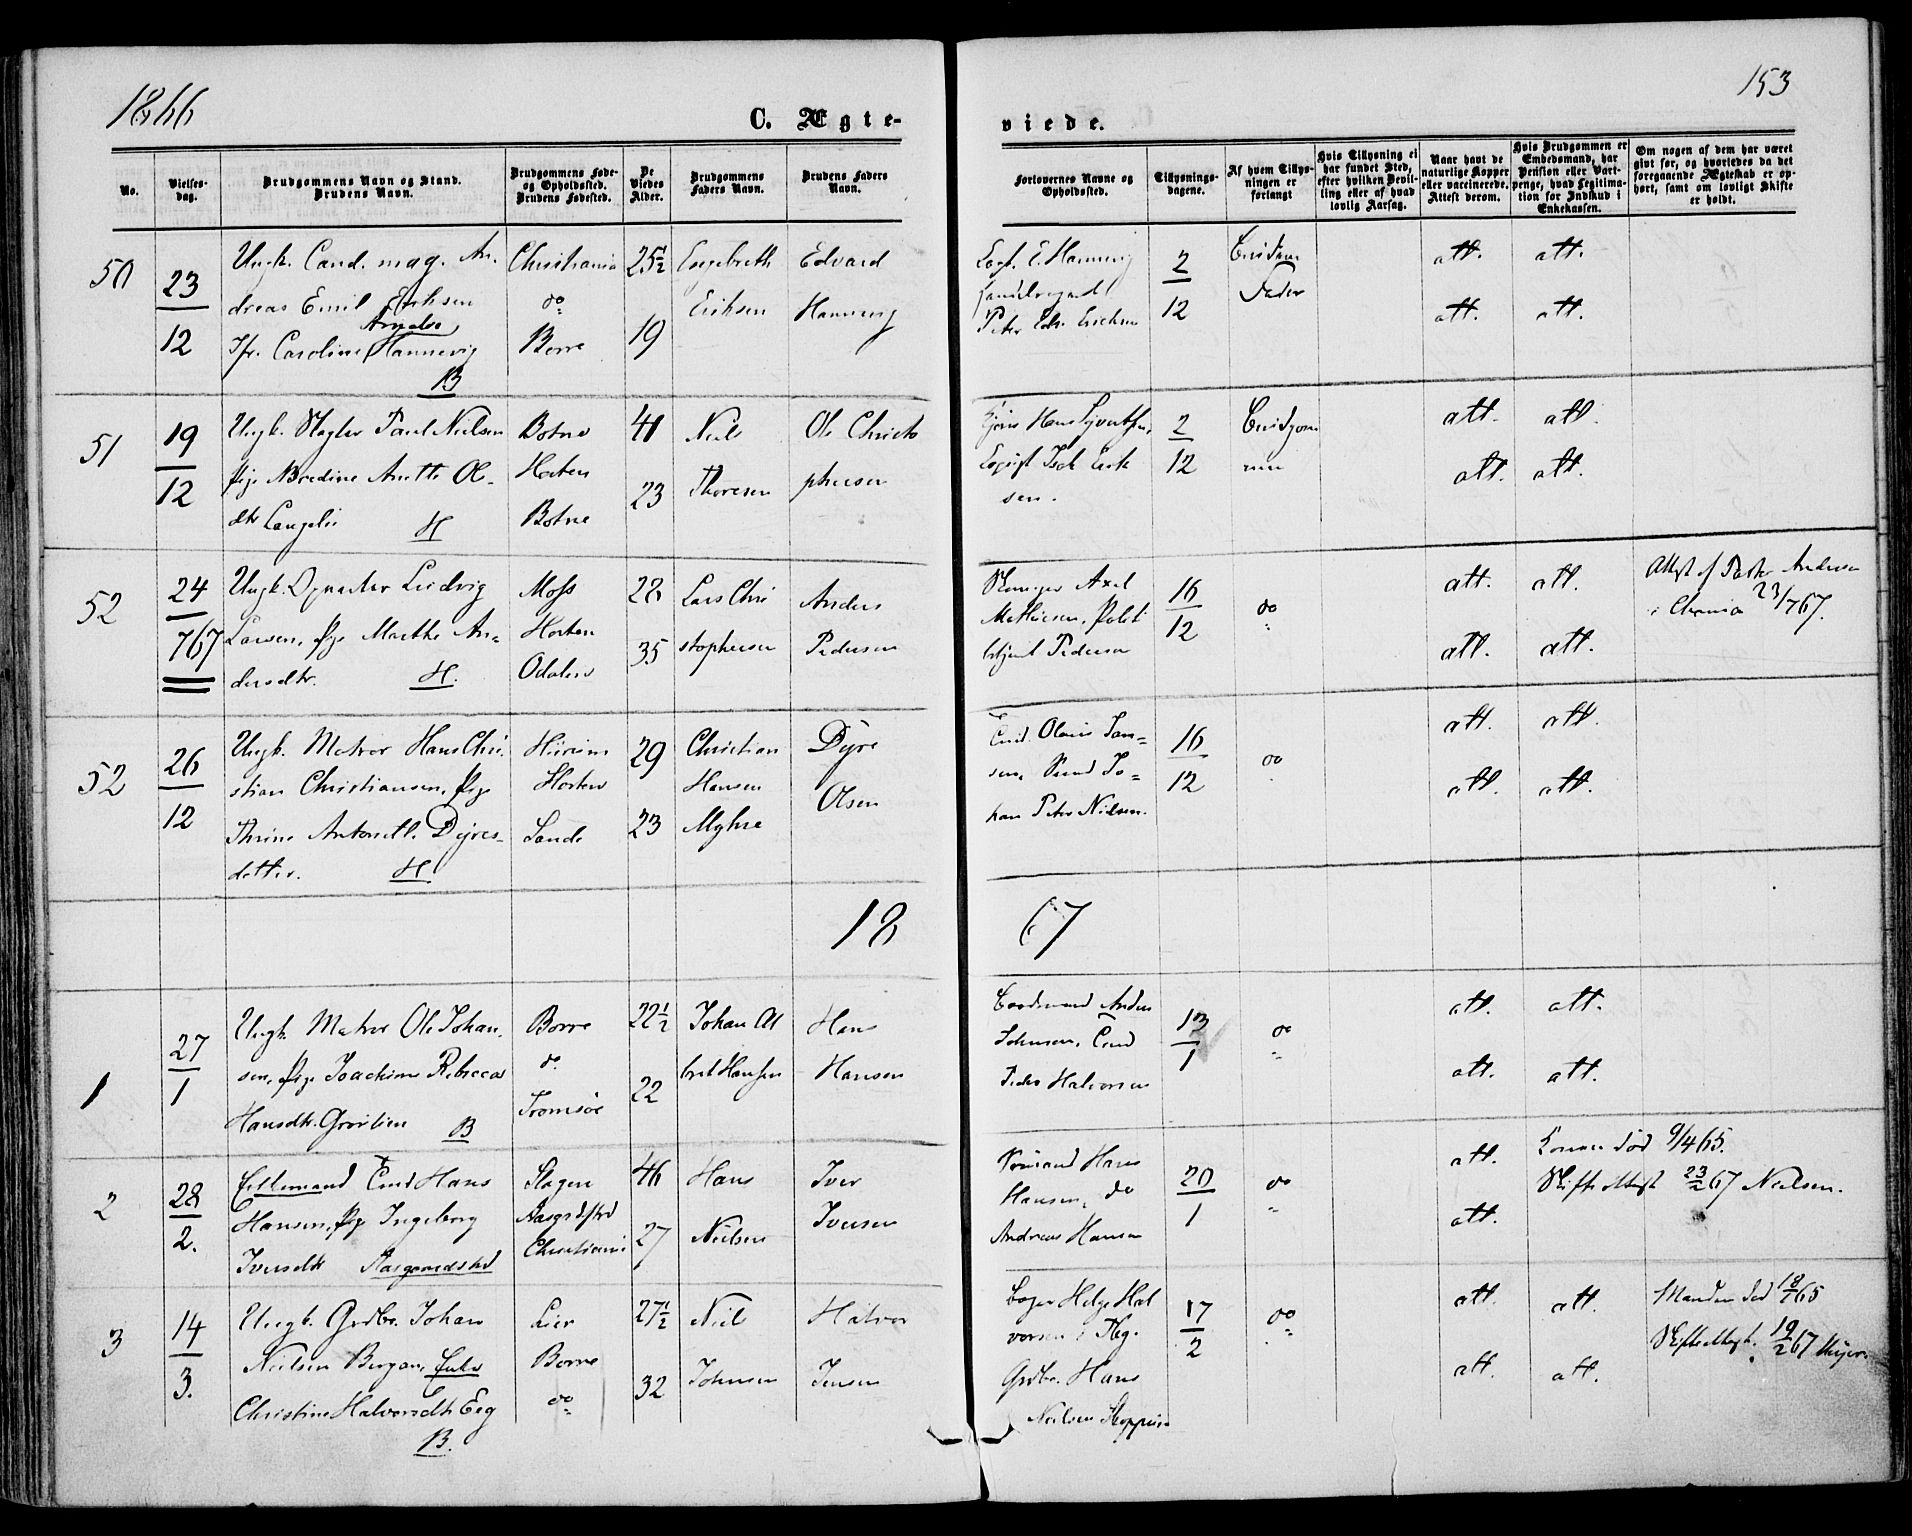 1866
153
C. Ægte-
viede.
No.
Vielses-
dag.
Brudgommens Navn og Stand.
Brudens Navn.
Brudgommens Føde-
og Opholdssted.
Brudens Fødested.
De
Viedes
Alder.
Brudgommens
Faders Navn.
Brudens Faders
Navn.
Forlovernes Navne og
Opholdssted.
Tillysnings-
dagene.
Af hvem Tillys-
ningen er
forlangt
Hvis Tillysning ei
har fundet Sted,
efter hvilken Bevil-
ling eller af hvad
lovlig Aarsag.
Naar havt de
naturlige Kopper
eller vaccinerede.
Attest derom.
Hvis Brudgommen er
Embedsmand, har
Pension eller Vart-
penge, hvad Legitima-
tion for Indskud i
Enkekassen.
Om nogen af dem har været
gift før, og hvorledes da det
foregaaende Ægteskab er op-
hørt, samt om lovligt Skifte
er holdt.
50
23/12
Ungk. Cand. mag. An-
dreas Emil Erichsen
Amalie
Jfr. Caroline Hannevig
B
Christiania
do
Borre
25½
19
Engebreth
Erichsen
Edvard
Hannevig
E. Hannevig
Peter Chr. Erichsen
2/12
Brudens
Fader
att. att.
att. att.
51
19/12
Ungk. Slagter Paul Nielsen
Pige Bredine Anette Ol-
dtr Langelie H
Botne
Horten
Botne
41
23
Niels
Thoresen
Ole Christo
phersen
Isak Erik
sen.
2/12
Brudgom
men
att. att.
att. att.
52
24/767
Ungk. Ludvig
Larsen, Pige Marthe An-
dersdtr. H.
Moss
Horten
Odalen
28
35
Lars Chri
stophersen
Anders
Pedersen
Axel
Mathiesen, Politi
betjent Pedersen
16/12
do
att. att.
att. att.
Attest af Pastor Andersen
i Chrania 23/767.
52
26/12
Ungk. Matros Hans Chri-
stian Christiansen, Pige
Thrine Antonette Dyres-
datter. H
Hurum
Horten
Sande
29
23
Christian
Hansen
Myhre
Dyre
Olsen
Olaus Jan-
sen, Jo-
han Peter Nielsen.
16/12
do
att. att.
att. att.
18 67
1
27/1
Ungk. Matros Ole Johan-
sen, Pige Joachime Rebecca
Hansdtr. Grorlien B
Borre
do
Tromsöe
22½
22
Johan Al
bret Hansen
Hans
Hansen
Anders
Johnsen,
Peder Halvorsen
13/1
do
att. att.
att. att.
2
28/2.
Enkemand Hans
Hansen, Pige Ingeborg
Iversdtr Aasgaardstrd
Slagen
Aasgrdstrd
Christiania
46
27
Hans
Nielsen
Iver
Iversen
Sömand Hans
Hansen, do
Andreas Hansen
20/1
do
att.
att.
Konen död 9/4 65.
Skifte Attest 23/2 67 Nielsen.
3
14/3.
Ungk. Grdbr. Johan
Nielsen Bergan, Enke
Christine Halvorsdtr Eeg
B.
Lier
Borre
do
27½
32
Niels
Johnsen
Halvor
Jensen
Helge Hal
vorsen i Teg.
Grdbr. Hans
Nielsen
17/2
do
att. att.
att. att.
Manden död 18/7 65
Skifte Attest. 19/2 67